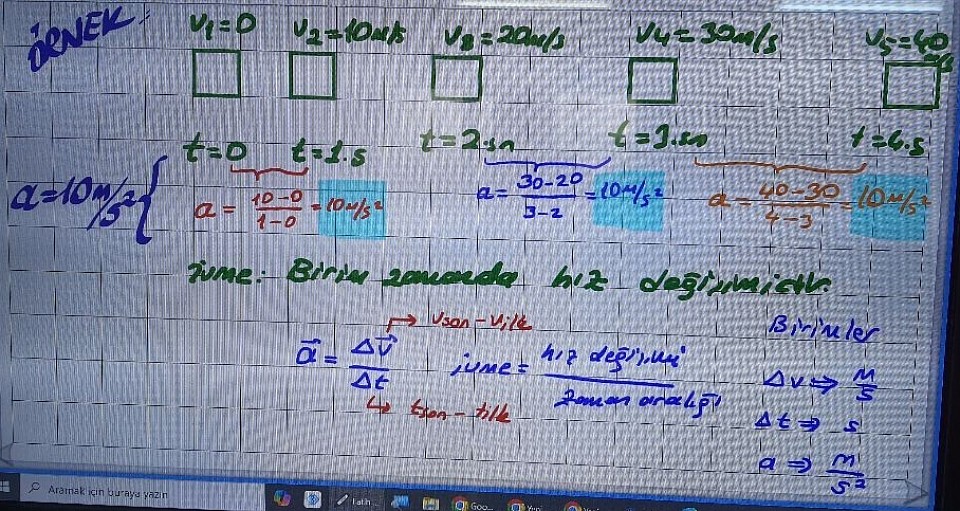 ÖRNEK:
V₁=0 V₂=10m/s V₃=20m/s V₄=30m/s V₅=40 m/s
t=0 t=1.s t=2.sn t=3.sn t=4.s
a=10m/s² {
a = 10-0 / 1-0 = 10m/s²
a = 30-20 / 3-2 = 10m/s²
a = 40-30 / 4-3 = 10m/s²
ivme: Birim zamanda hız değişimidir.
→ Vson-Vilk
a⃗ = Δv⃗ / Δt
↳ tson-tilk
ivme = hız değişimi / zaman aralığı
Birimler
Δv ⇒ m/s
Δt ⇒ s
a ⇒ m/s²
Aramak için buraya yazın
Fatih...
Goo...
Yeni